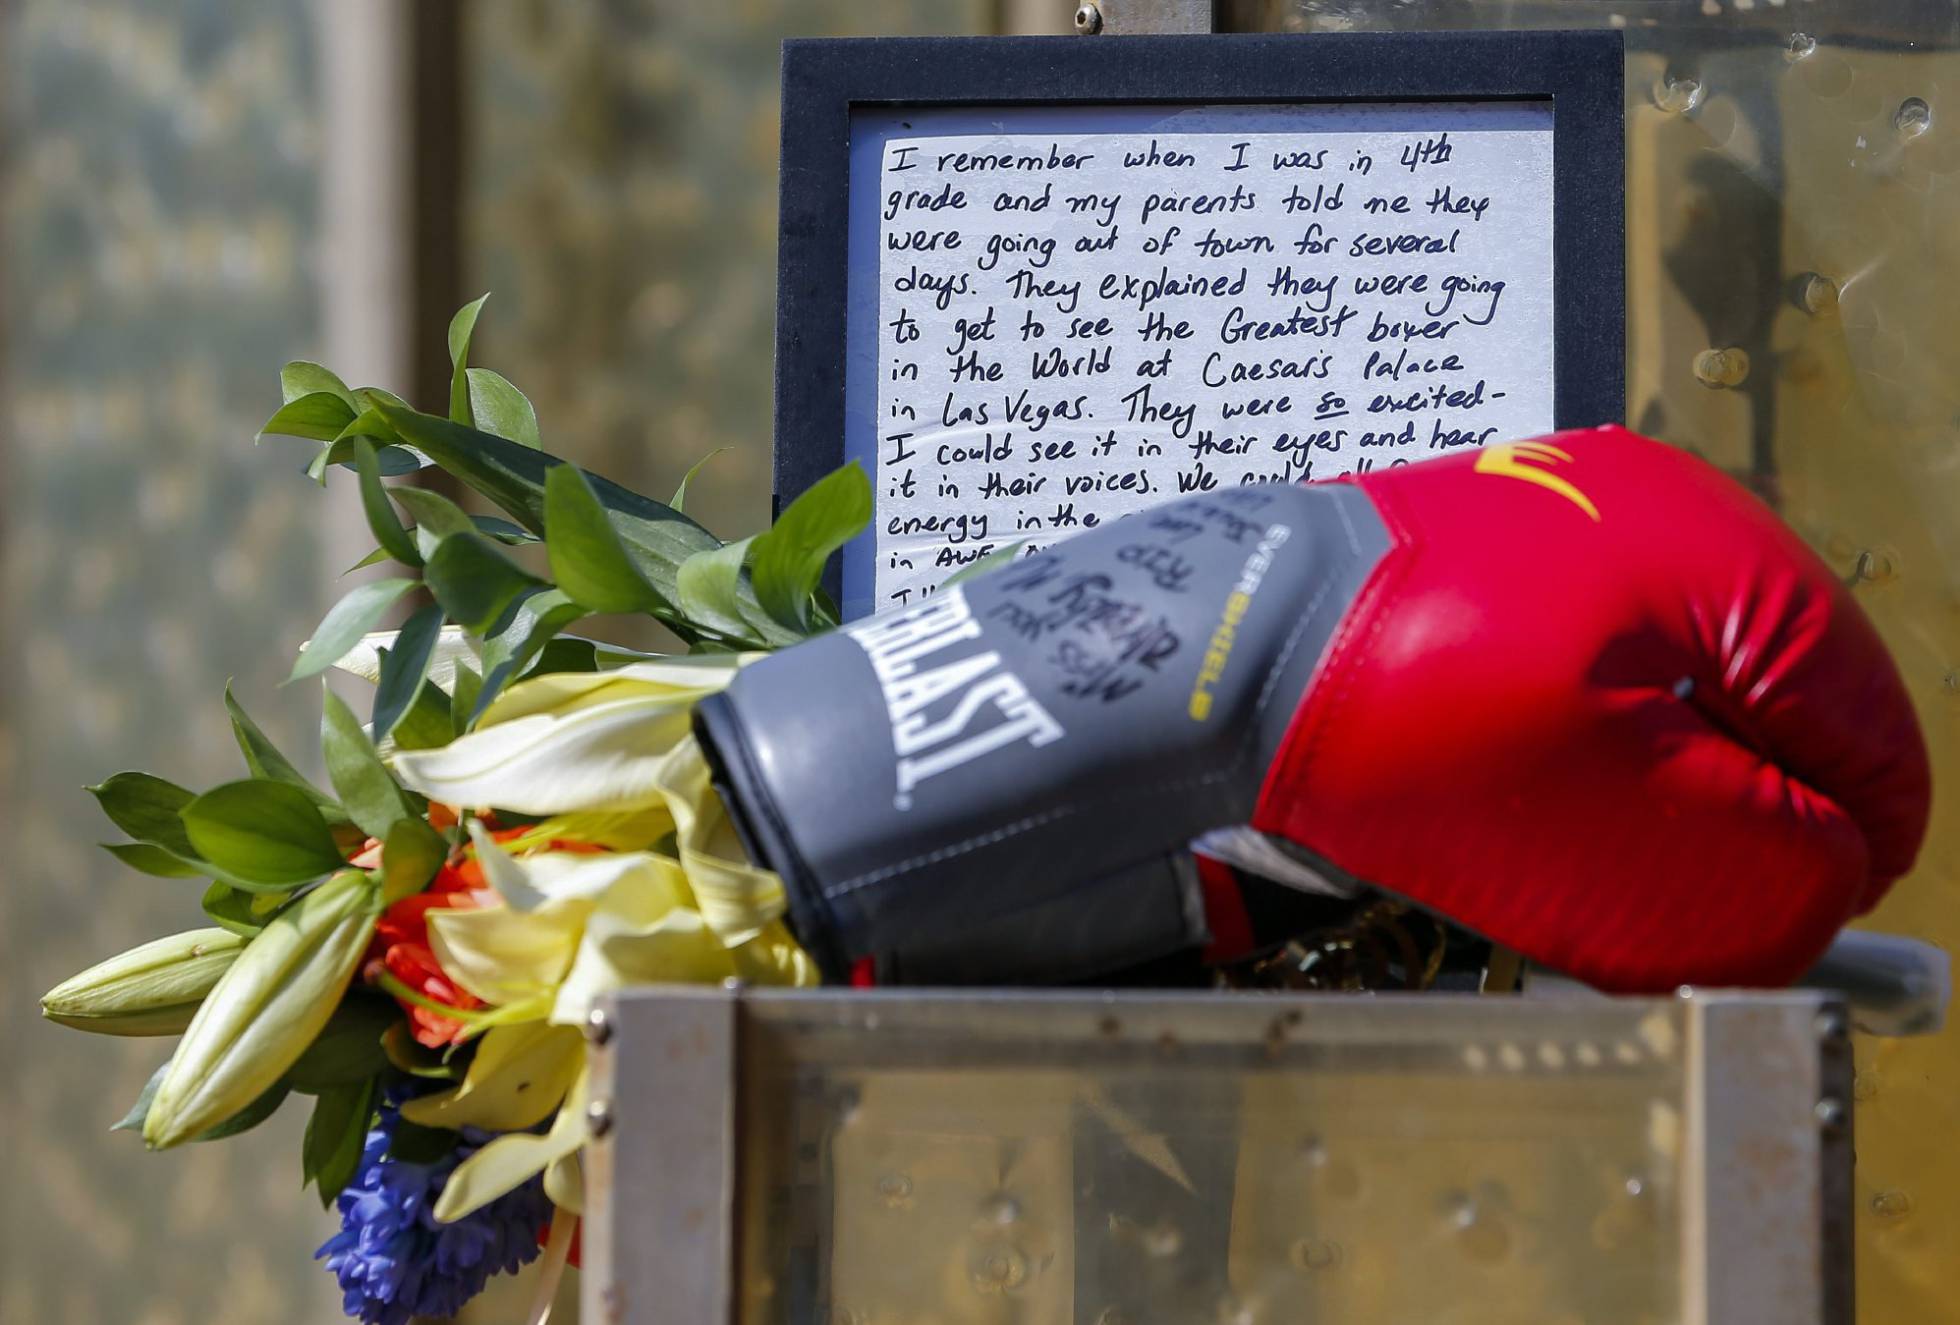 I remember when I was in 4th
grade and my parents told me they
were going out of town for several
days. They explained they were going
to get to see the Greatest boxer
in the World at Caesar's Palace
in Las Vegas. They were so excited-
I could see it in their eyes and hear
it in their voices. We could all
energy in the
in AWE
EVERLAST
EVERSHIELD
Miss You
RIP